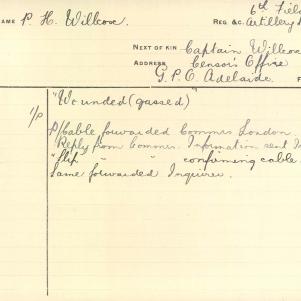 NAME P. H. Willcox.
REG &C. 6th Field
Artillery
NEXT OF KIN Captain Willcox
ADDRESS Censor's Office
G.P.O. Adelaide.
"Wounded (gassed)"
1/p P/Cable forwarded Commrs London
Reply from Commrs. Information send
"slip " " confirming cable
Same forwarded Inquirer.